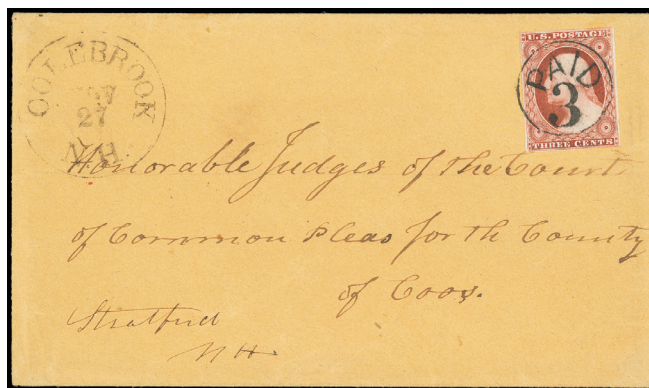 COLEBROOK
27
N.H.
U.S. POSTAGE
PAID
3
THREE CENTS
Honorable Judges of the Court
of Common Pleas for th County
of Coos.
Stratford
N H.